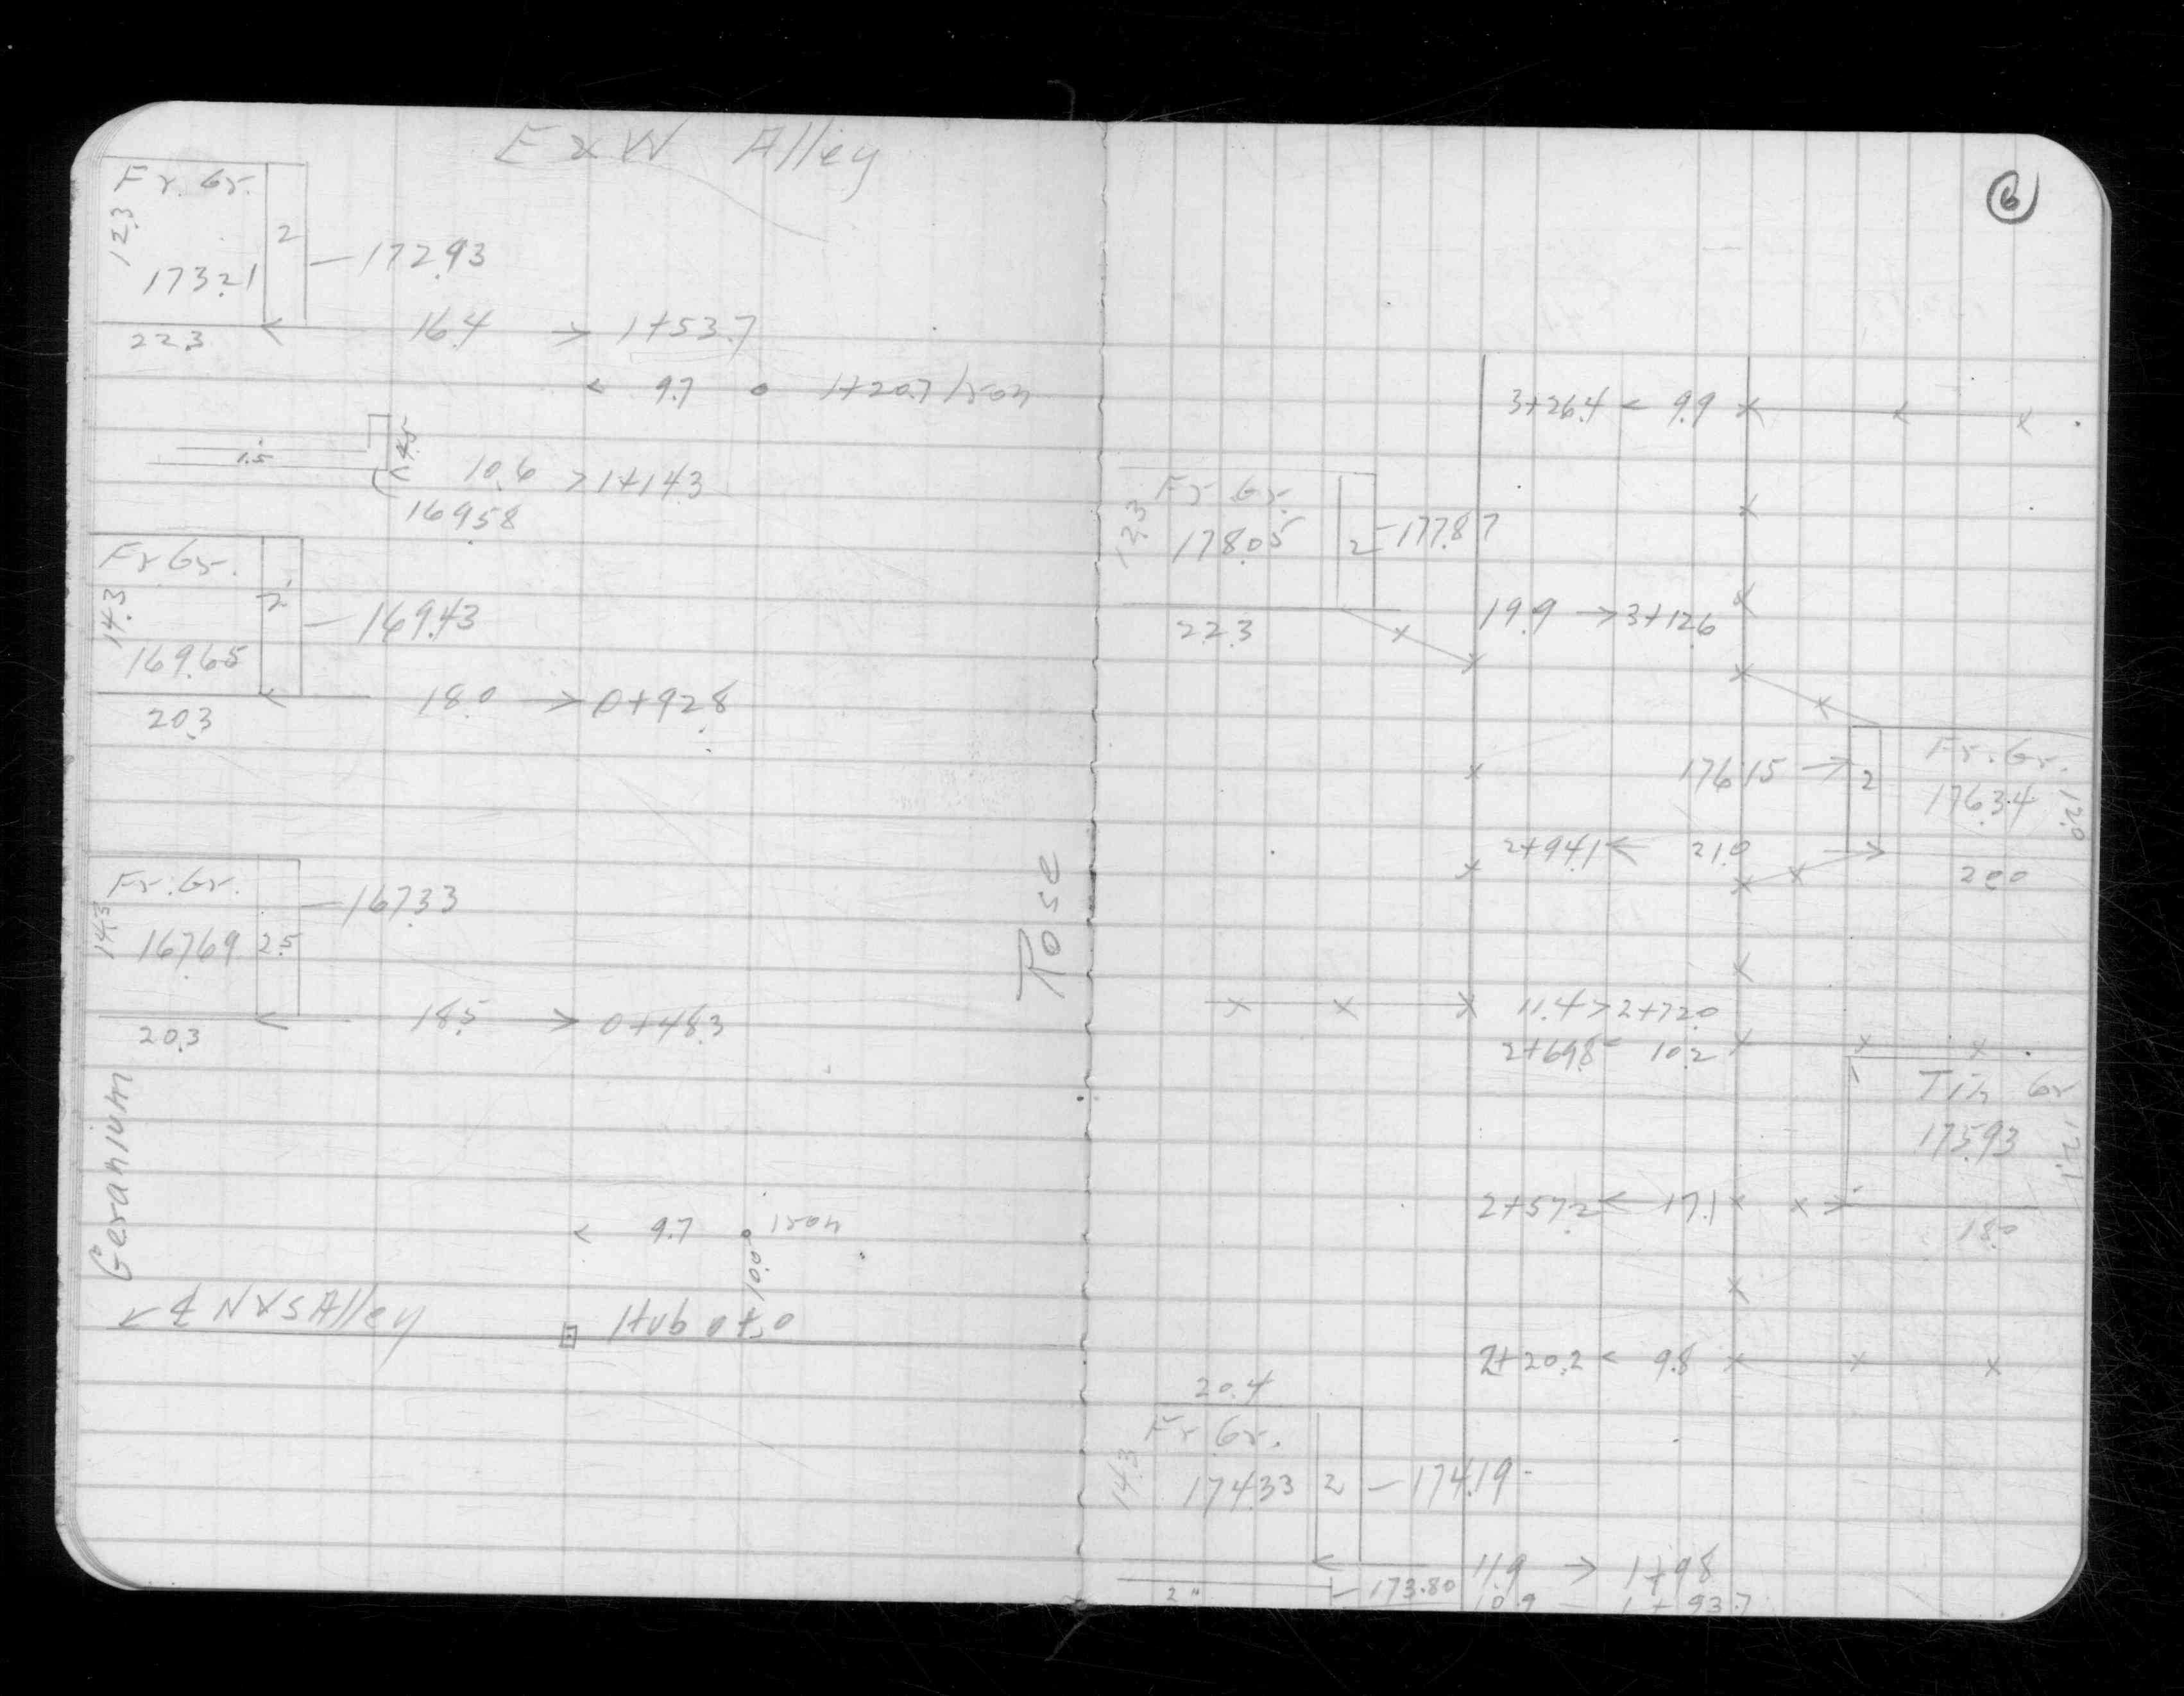 E x W Alley
Fr. Gr.
12.3
2
172.93
173.21
16.4 1+53.7
22.3
9.7 1+20.7 Iron
4.5
1.5
10.6 1+14.3
169.58
Fr Gr.
14.3
2
169.43
169.65
18.0 0+92.8
20.3
Fr. Gr.
14.3
167.33
167.69 2.5
18.5 0+48.3
20.3
Geranium
9.7 Iron
10.0
₵ N x S Alley Hub 0+50
Rose
6
3+26.4 9.9
Fr Gr.
12.3
178.05 2 177.87
19.9 3+12.6
22.3
Fr. Gr.
176.15 2
176.34
12.0
2+94.1 21.0
20.0
11.4 2+72.0
2+69.8 10.2
Tin Gr
175.93
12.1
2+57.2 17.1
18.0
2+20.2 9.8
20.4
Fr Gr.
14.3
174.33 2 174.19
11.9 1+98
2" 173.80
10.9 1+93.7